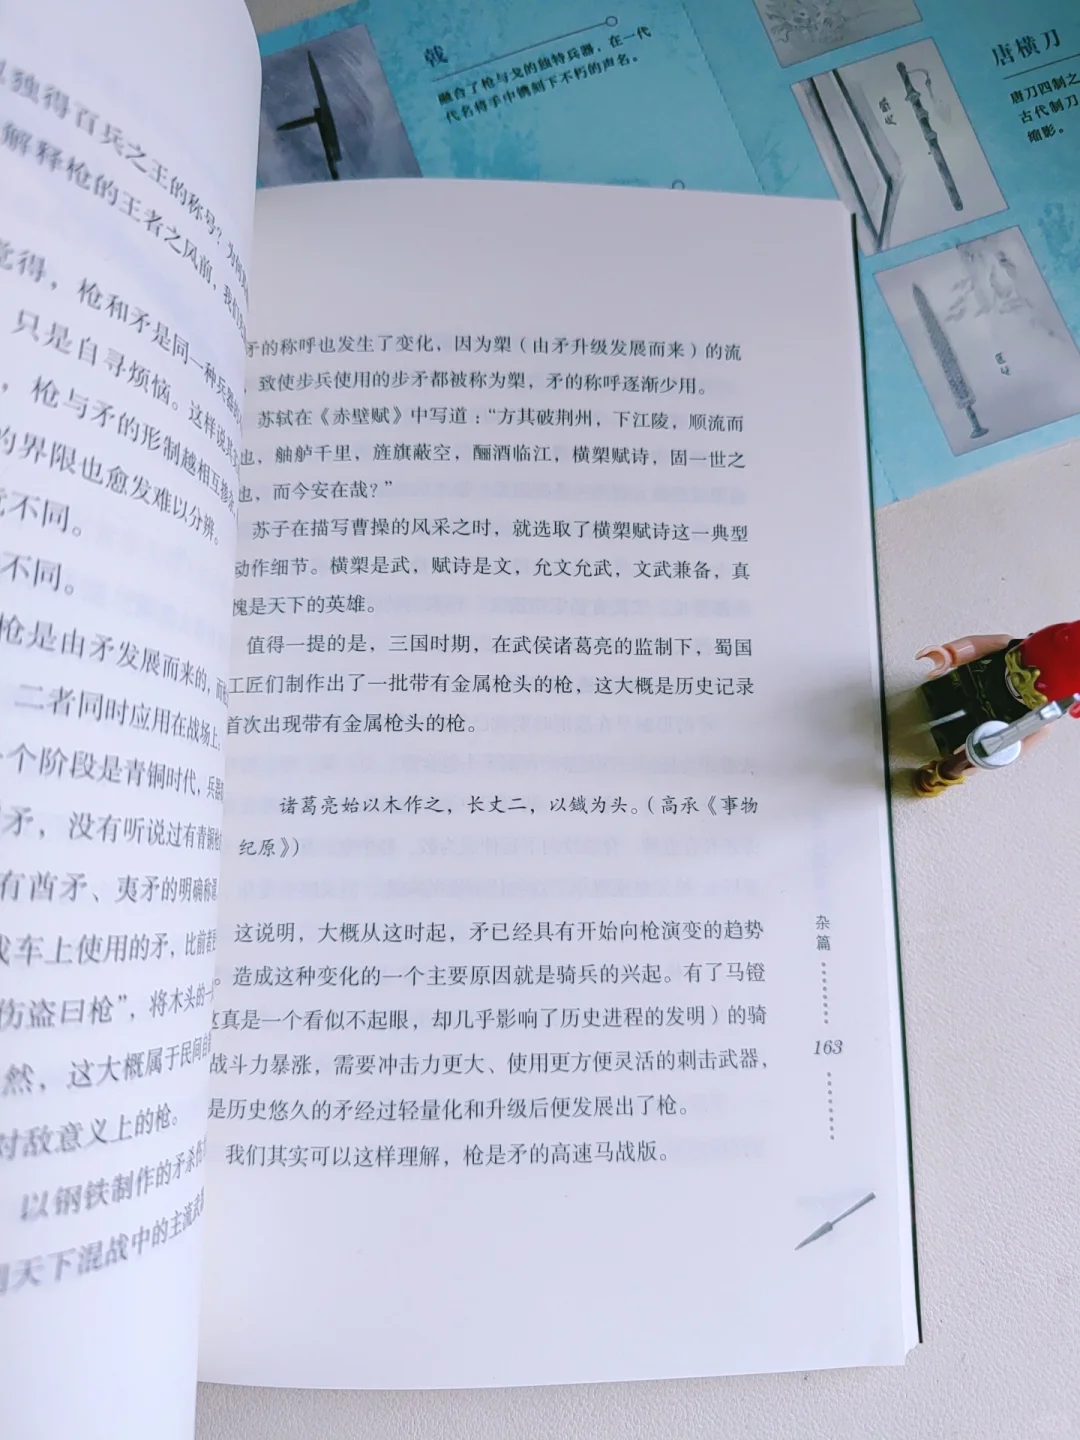 戟
融合了枪与戈的独特兵器，在一代
代名将手中镌刻下不朽的声名。
唐横刀
唐刀四制之
古代制刀
缩影。
独得百兵之王的称号？为何
解释枪的王者之风前，我们
觉得，枪和矛是同一种兵器
只是自寻烦恼。这样说
，枪与矛的形制越相互掺杂
的界限也愈发难以分辨。
不同。
不同。
枪是由矛发展而来的，而
二者同时应用在战场上，
个阶段是青铜时代，兵器
矛，没有听说过有青铜枪
有酋矛、夷矛的明确称谓
战车上使用的矛，比前者更
伤盗曰枪”，将木头的一
然，这大概属于民间自
对敌意义上的枪。
以钢铁制作的矛杀伤
天下混战中的主流武
矛的称呼也发生了变化，因为槊（由矛升级发展而来）的流
，致使步兵使用的步矛都被称为槊，矛的称呼逐渐少用。
苏轼在《赤壁赋》中写道：“方其破荆州，下江陵，顺流而
也，舳舻千里，旌旗蔽空，酾酒临江，横槊赋诗，固一世之
也，而今安在哉？”
苏子在描写曹操的风采之时，就选取了横槊赋诗这一典型
动作细节。横槊是武，赋诗是文，允文允武，文武兼备，真
愧是天下的英雄。
值得一提的是，三国时期，在武侯诸葛亮的监制下，蜀国
工匠们制作出了一批带有金属枪头的枪，这大概是历史记录
首次出现带有金属枪头的枪。
诸葛亮始以木作之，长丈二，以鐵为头。（高承《事物
纪原》）
这说明，大概从这时起，矛已经具有开始向枪演变的趋势
。造成这种变化的一个主要原因就是骑兵的兴起。有了马镫
这真是一个看似不起眼，却几乎影响了历史进程的发明）的骑
战斗力暴涨，需要冲击力更大、使用更方便灵活的刺击武器，
是历史悠久的矛经过轻量化和升级后便发展出了枪。
我们其实可以这样理解，枪是矛的高速马战版。
杂篇
163